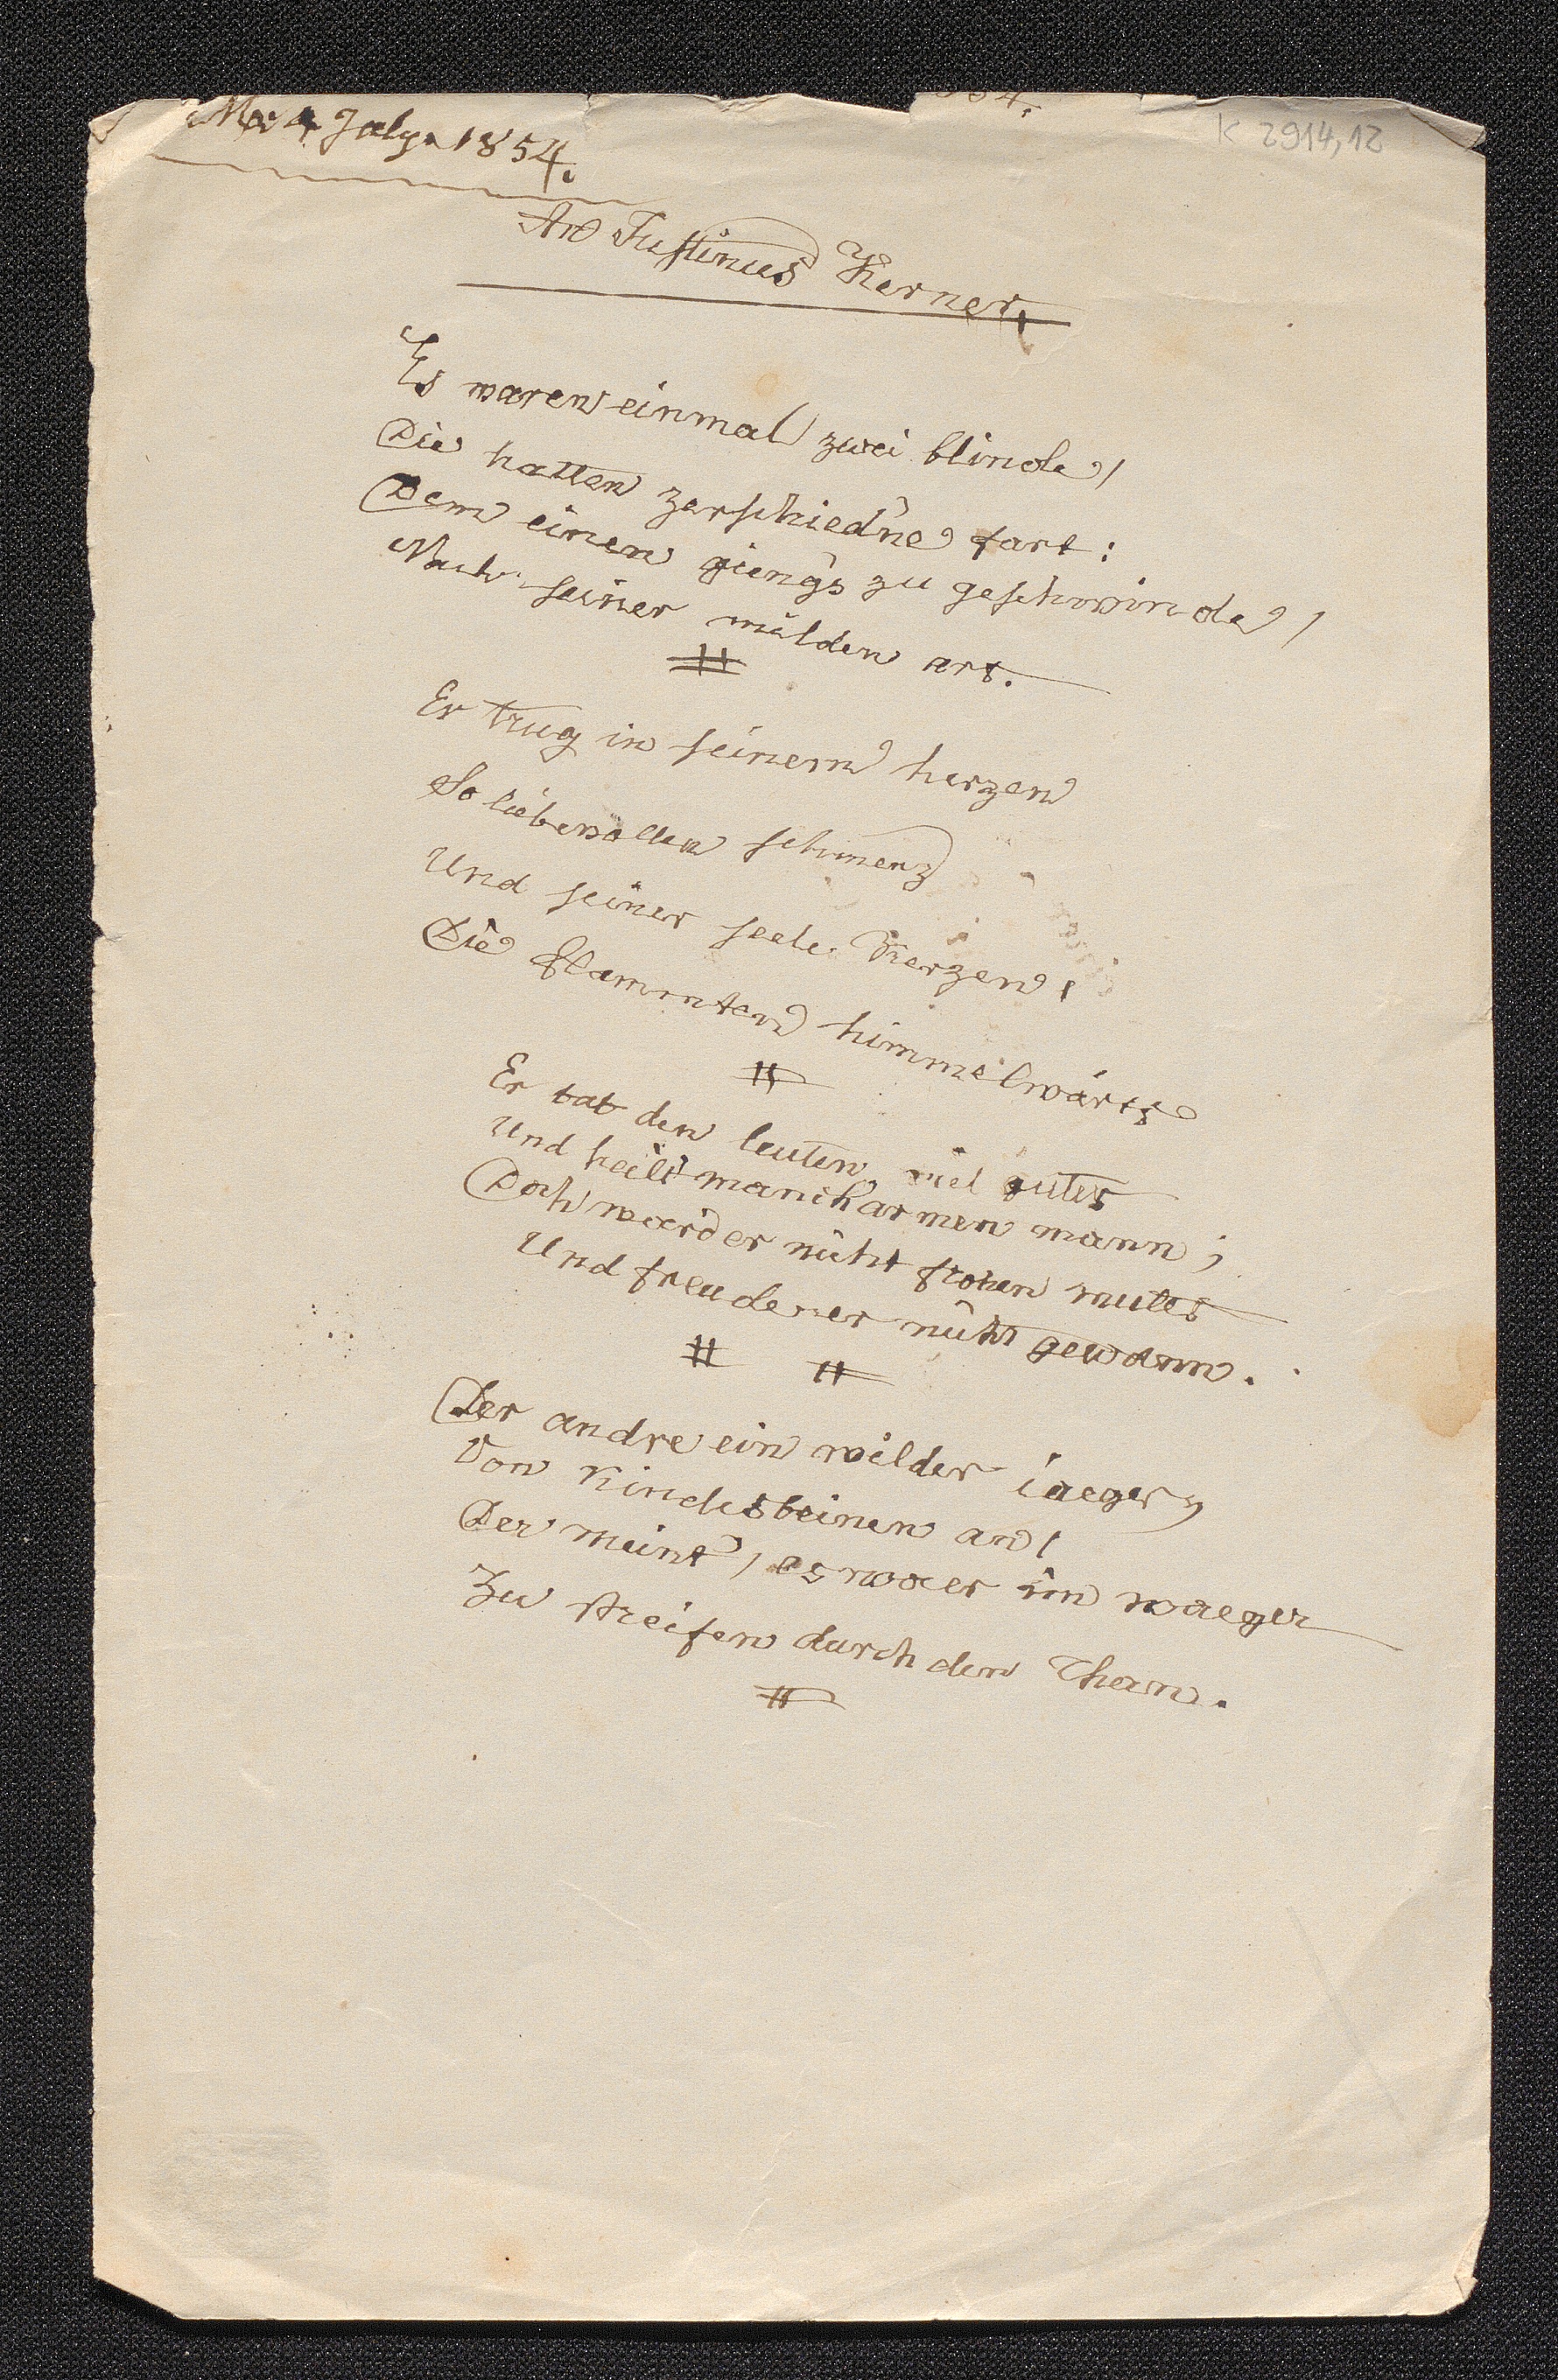 4 July 1854.
54.
K 2914,12
An Justinus Kerner,
Es waren einmal zwei blinde,
Die hatten verschied'ne fart:
Dem einen gieng's zu geschwinde,
Nach seiner milden art.
Er trug in seinem herzen
So liebevollen schmerz
Und seiner seele Kerzen,
Die flammten himmelwärts
Er tat den leuten viel gutes
Und heilt' manch armen mann;
Doch ward er nicht frohen mutes
Und freuden er nicht gewann.
Der andre ein wilder iaeger,
Von Kindesbeinen an,
Der meint', es waer im waeger
Zu streifen durch den Than.